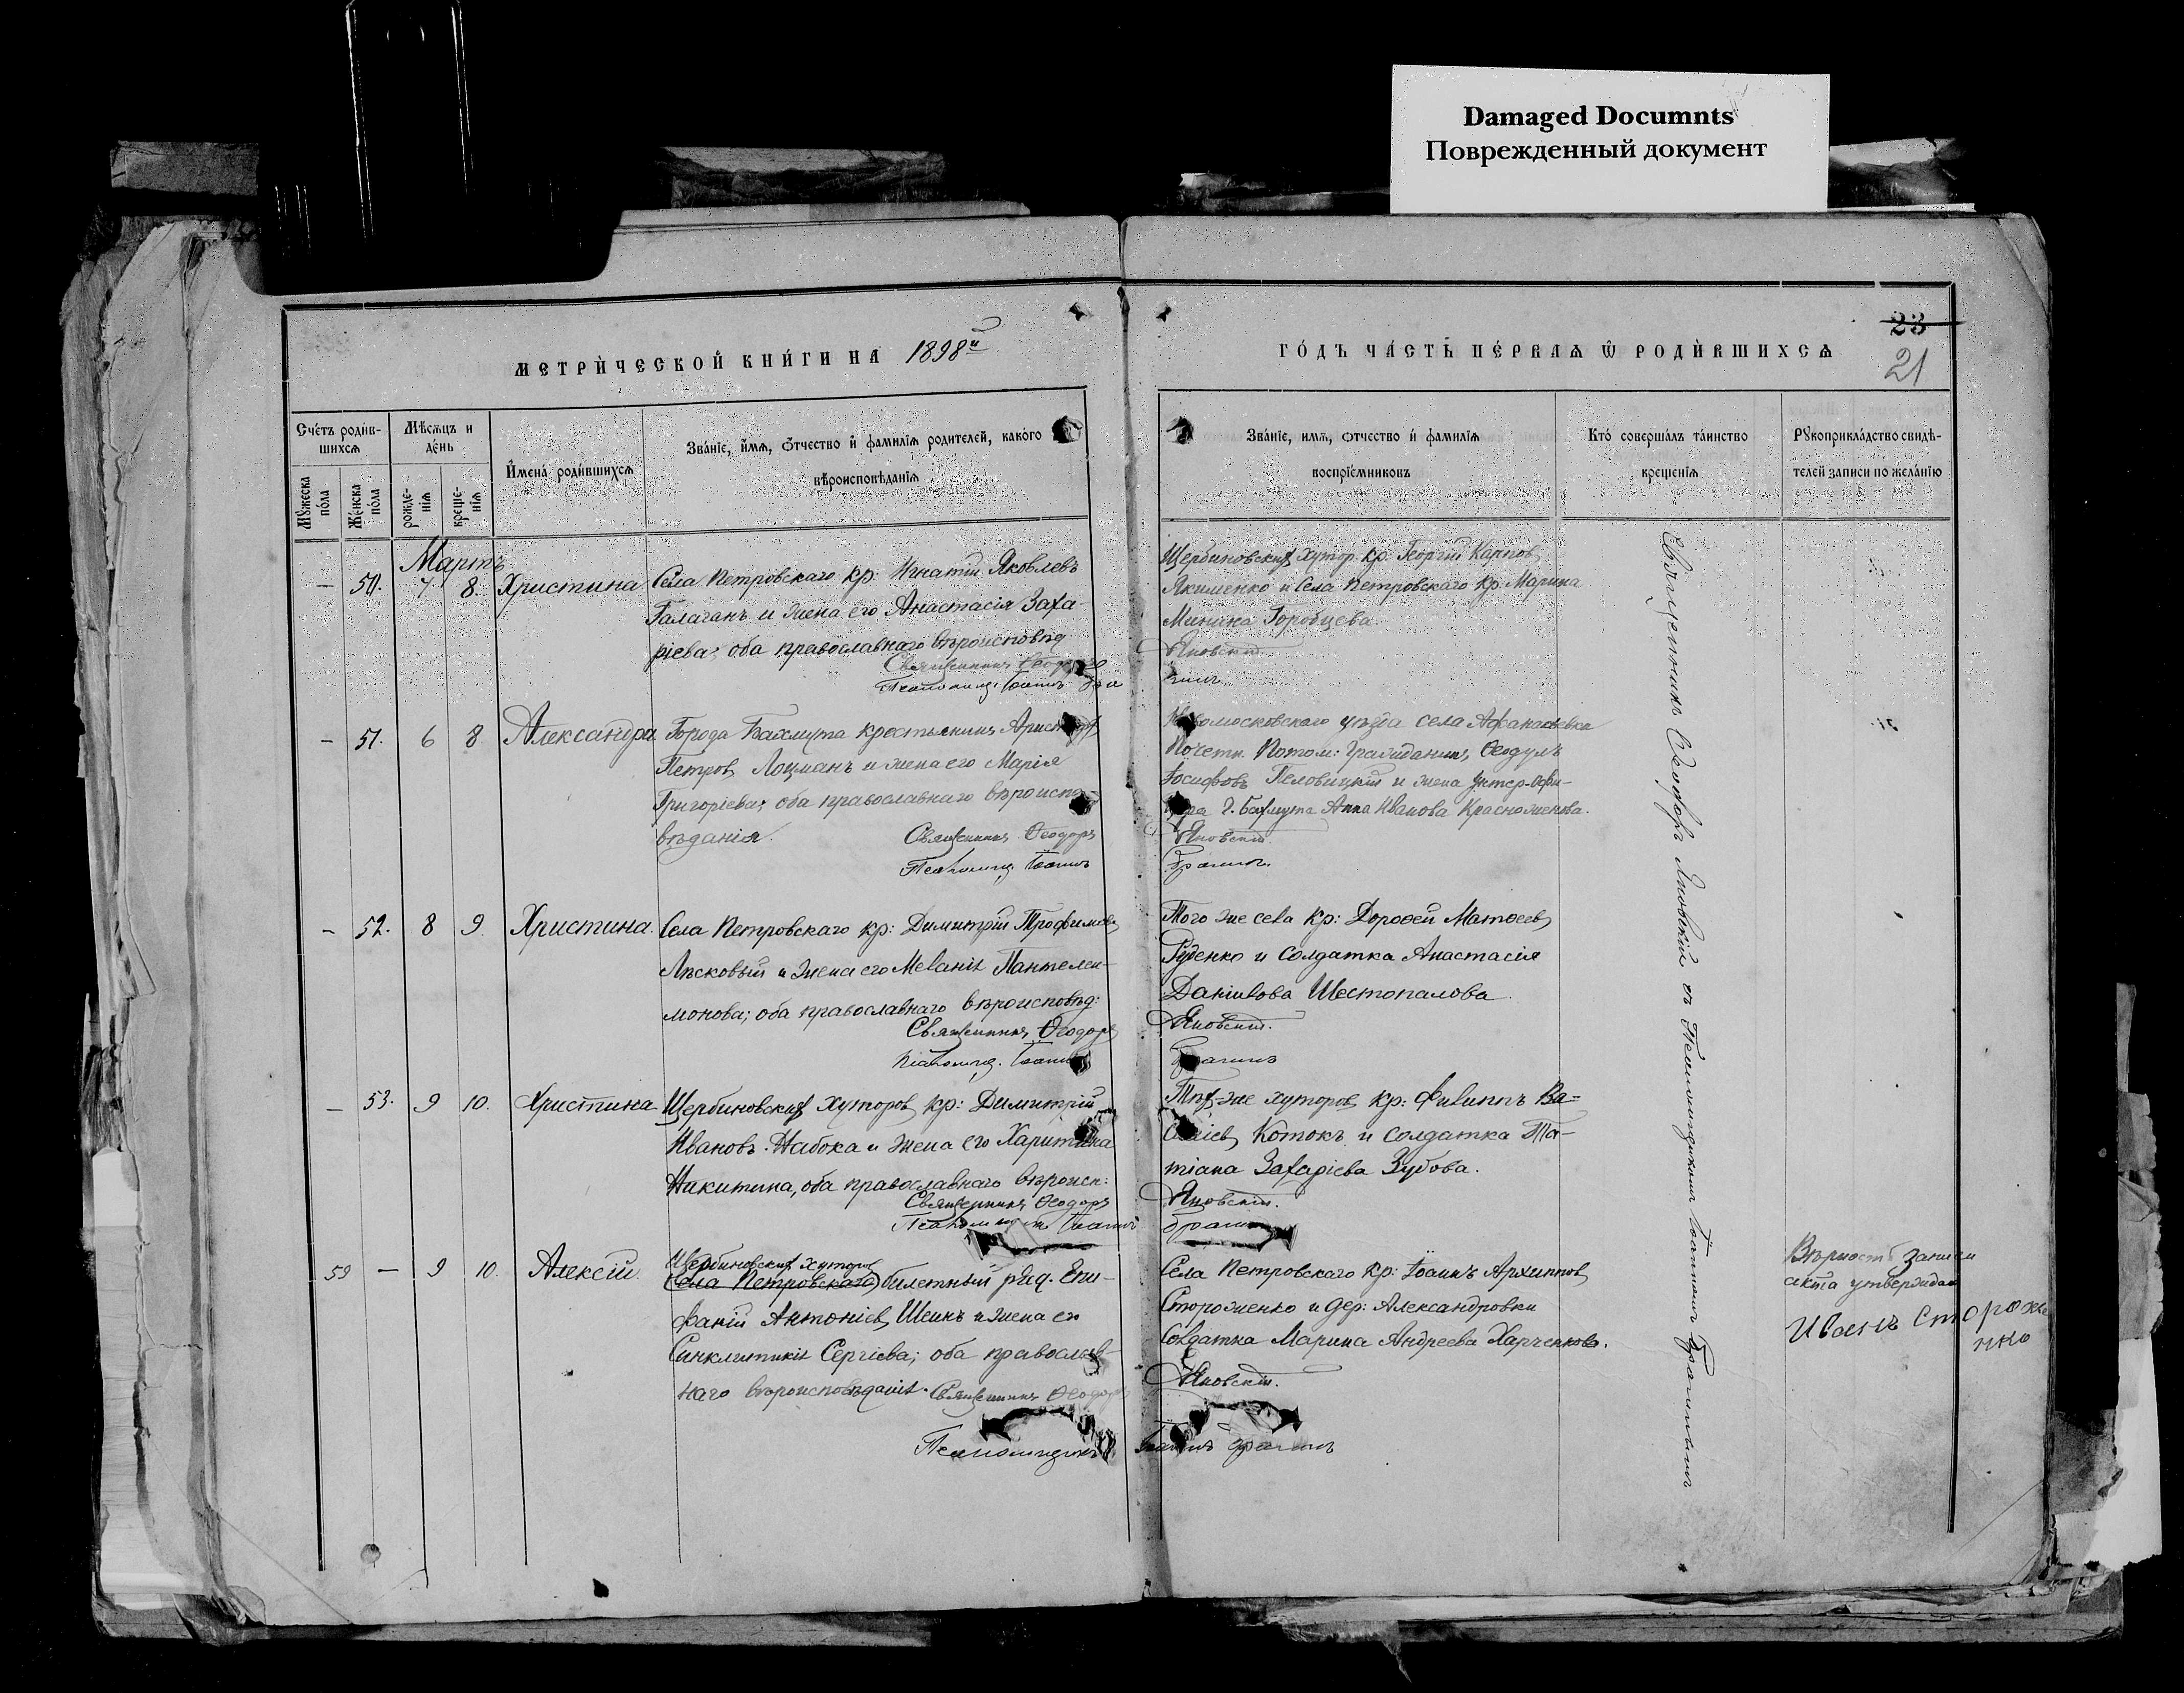 Damaged Documnts
Поврежденный документ
МЕТРИ́ЧЕСКОЙ КНИ́ГИ НА 1898й
ГО́ДЪ ЧА́СТЬ ПЕ́РВАѦ Ѿ РОДИ́ВШИХСѦ
23
21
Сче́тъ роди́в-
шихсѧ
Мѣ́сѧцъ и
де́нь
Мꙋжеска
по́ла
Же́нска
по́ла
рожде-
нїѧ
креще-
нїѧ
И҆мена̀ роди́вшихсѧ
Зва́нїе, и҆́мѧ, ѻ҆́тчество и҆ фамилїѧ родителей, како́го
вѣроисповѣ́данїѧ
Зва́нїе, имѧ, отчество и҆ фамилїѧ
воспрїе́мниковъ
Кто̀ соверша́лъ та́инство
крещенїѧ
Рꙋкоприкла́дство свидѣ-
телей записи по жела́нїю
Мартъ
— 50. 7 8. Христина
Села Петровскаго кр: Игнатій Яковлевъ
Галаганъ и жена его Анастасія Заха-
ріева; оба православнаго вѣроисповѣд.
Священникъ Ѳеодоръ
Псаломщ. Іоаннъ
Щербиновских хутор. кр: Георгій Карпов
Якименко и Села Петровскаго кр: Марина
Минина Горобцева.
Яновскій.
— 51. 6 8 Александра
Города Бахмута крестьянинъ
Петров Лоцманъ и жена его Марія
Григоріева; оба православнаго вѣроиспо-
вѣданія.
Священникъ Ѳеодоръ
Псаломщ. Іоаннъ
уѣзда села Афанасьевка
Почетн. Потом: Гражданин Ѳеодулъ
Іосифовъ и жена Унтер-Офи-
цера г. Бахмута Анна Иванова Красножонова.
Яновскій.
Брагинъ.
— 52. 8 9. Христина.
Села Петровскаго кр: Димитрій Трофимовъ
Лѣсковый и жена его Меланія Пантелеи-
монова; оба православнаго вѣроисповѣд:
Священникъ Ѳеодоръ
Псаломщ. Іоаннъ
Того же села кр: Дороѳей Матѳеев
Руденко и солдатка Анастасія
Даніилова Шестопалова.
Яновскій.
Брагинъ
— 53. 9 10. Христина
Щербиновских Хуторов кр: Димитрій
Ивановъ Набока и жена его Харитина
Никитина, оба православнаго вѣроисп:
Священникъ Ѳеодоръ
Псаломщикъ Іоаннъ
Тѣх-же хуторов кр: Филиппъ Ва-
силіев Котокъ и солдатка Та-
тіана Захаріева Зубова.
Яновскій.
Брагинъ
59 — 9 10. Алексій.
Щербиновских хуторов
Села Петровскаго билетный ряд. Епи-
фаній Антоніев Шеинъ и жена его
Синклитикія Сергіева; оба православ-
наго вѣроисповѣданія. Священникъ Ѳеодоръ
Псаломщикъ
Села Петровскаго кр: Іоаннъ Архиппов
Стороженко и дер: Александровки
Солдатка Марина Андреева Харченкова.
Яновскій.
Іоаннъ Брагинъ
Священникъ Ѳеодоръ Яновскій съ Псаломщикомъ Іоанномъ Брагинымъ
Вѣрность записи
акта утверждаю
Иванъ Стороже
нко